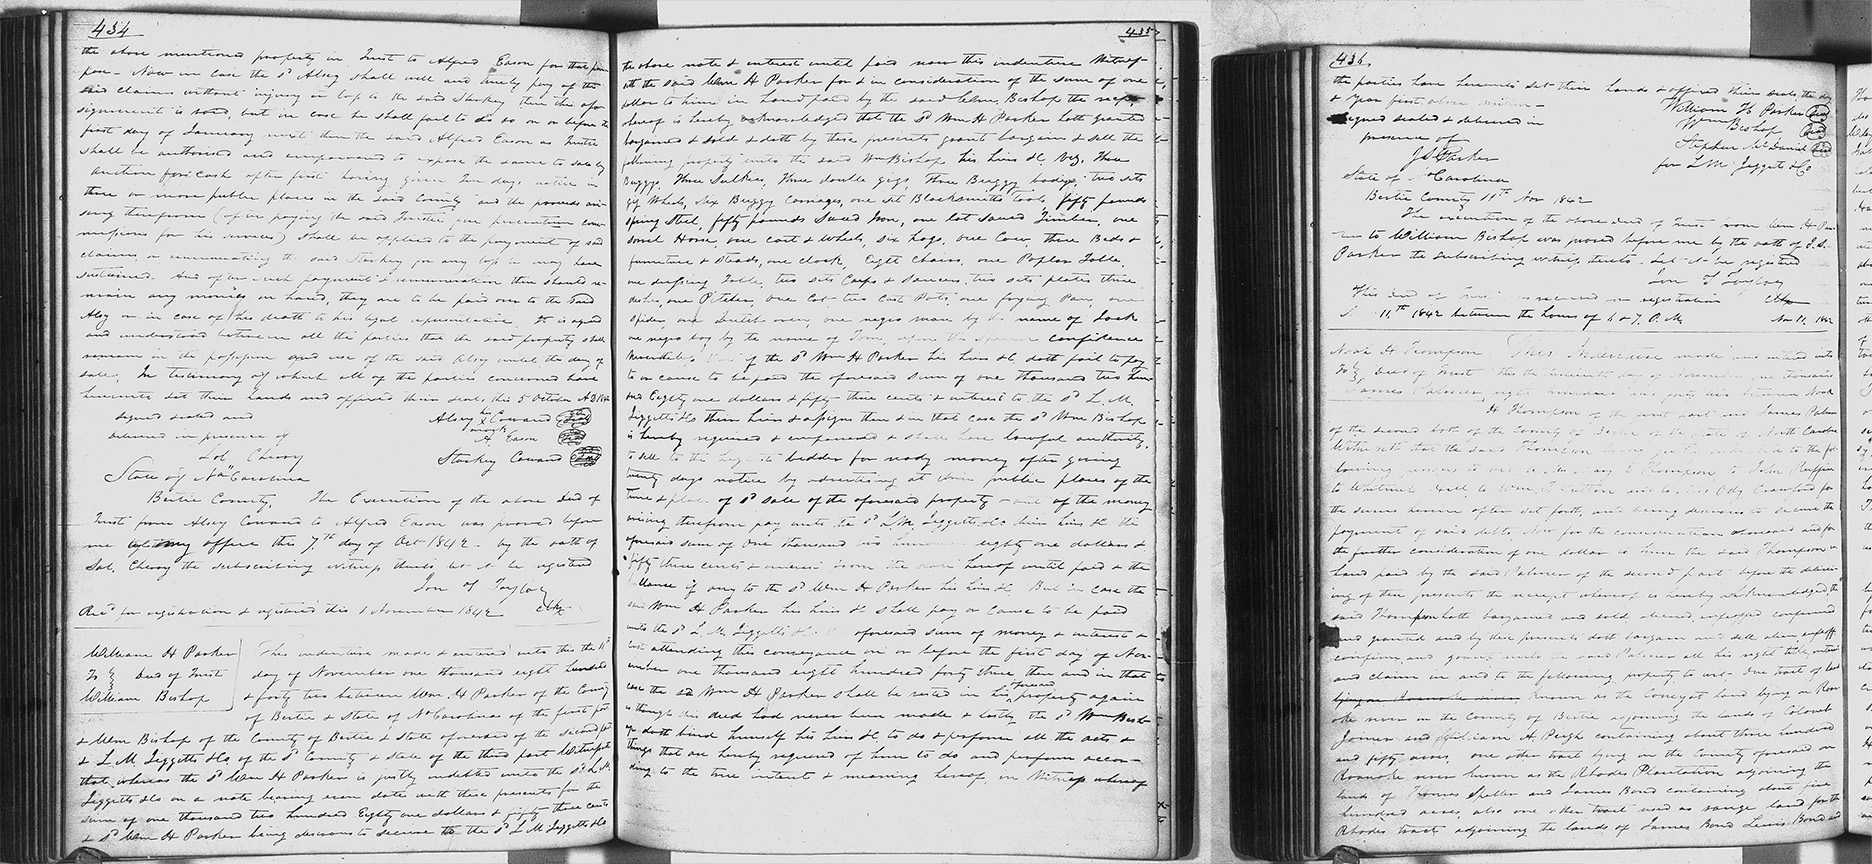 434
the above mentioned property in Trust to Alfred Eason for that pur
pose - Now in case the sd Alsey shall well and truly pay of the
said claims without injury or loss to the said Starkey then this
signment is void, but in case he shall fail to do so on or before the
first day of January next then the said Alfred Eason as Trustee
shall be authorised and empowered to expose the same to sale by
auction for cash after first having given Ten days notice in
three or more public places in the said County and the proceeds ari
sing therefrom (after paying the said Trustee five per centum com
missions for his services) shall be applied to the payment of said
claims or remunerating the said Starkey for any loss he may have
sustained. And after such payment & remuneration there should re
main any monies on hand, they are to be paid over to the said
Alsey or in case of his death to his legal representative. It is agreed
and understood between all the parties that the said property shall
remain in the possession and use of the said Alsey until the day of
sale, In testimony of which all of the parties concerned have
hereunto set their hands and affixed their seals, this 5 October AD 1842
signed sealed and Alsey his X mark Coward Seal
delivered in presence of A. Eason Seal
Sol Cherry Starkey Coward Seal
State of No Carolina
Bertie County, The Execution of the above Deed of
Trust from Alsey Coward to Alfred Eason was proved before
me my office this 7th day of Oct 1842 - by the oath of
Sol. Cherry the subscribing witness thereto let it be registered
Jon S Taylor
Recd for registration & registered this 1 November 1842 Clk
William H Parker
To } Deed of Trust
William Bishop
This indenture made & entered into this the 11th
day of November one thousand eight hundred
& forty two between Wm. H Parker of the County
of Bertie & State of No Carolina of the first part
& Wm Bishop of the County of Bertie & State aforesaid of the second part
& L M Leggetts & Co of the sd County & State of the third part Witnesseth
that, whereas the sd Wm H Parker is justly indebted unto the sd L. M.
Leggetts & Co on a note bearing even date with these presents for the
sum of one thousand two hundred Eighty one dollars & fifty three cents
& sd Wm H Parker being desirous to secure to the sd L M Leggetts & Co
435
the above note & interest until paid now this indenture Witness-
eth the said Wm H Parker for & in consideration of the sum of one
dollar to him in hand paid by the said Wm Bishop the receipt
whereof is hereby acknowledged that the sd Wm H Parker hath granted
bargained & sold & doth by these presents grant bargain & sell the
following property unto the said Wm Bishop his heirs &c, viz, Three
Buggys, Three Sulkies, Three double gigs, Three Buggy bodys, two sets
gig Wheels, six Buggy Carriages, one set Blacksmiths tools, fifty pounds
spring Steel, fifty pounds Iron, one lot Timber, one
sorrel Horse, one cart & Wheels, six hogs, one Cow, three Beds &
furniture & steads, one clock, Eight chairs, one Poplar Table,
one dressing Table, two sets Cups & Saucers, two sets plates three
dishes, one Pitcher, one two Cast Pots, one frying Pan, one
spider, one one negro man by the name of Jack
one negro boy by the name of Tom, upon the confidence
Nevertheless, if the sd Wm H Parker his heirs &c doth fail to pay
to or cause to be paid the aforesaid sum of one thousand two hun-
dred Eighty one dollars & fifty three cents & interest to the sd L. M.
Leggetts & Co their heirs & assigns then & in that case the sd Wm Bishop
is hereby required & empowered & shall have lawful authority,
to sell to the highest bidder for ready money after giving
twenty days notice by advertising at three public places of the
time & place of sd sale of the aforesaid property and of the money
arising therefrom pay unto the sd L. M. Leggetts & Co their heirs &c the
aforesaid sum of One thousand two hundred eighty one dollars &
fifty three cents & interest from the date hereof until paid & the
ballance if any to the sd Wm H Parker his heirs &c, But in case the
said Wm H Parker his heirs &c shall pay or cause to be paid
unto the sd L. M. Leggetts & Co aforesaid sum of money & interest &
cost attending this conveyance on or before the first day of Nov-
ember one thousand eight hundred forty three then and in that
case the sd Wm H Parker shall be vested in his property again
as though this deed had never been made & lastly the sd Wm Bish-
op doth bind himself his heirs &c to do & perform all the acts &
things that are hereby required of him to do and perform accor-
ding to the true intent & meaning hereof, in Witness whereof
436
the parties have hereunto set their hands & affixed their seals the day
& year first above written -
signed sealed & delivered in William H Parker Seal
presence of Wm Bishop Seal
J S Parker Stephen McDaniel Seal
for L M Leggett & Co
State of No Carolina
Bertie County 11th Nov 1842
The execution of the above deed of Trust from Wm. H Par
ker to William Bishop was proved before me by the oath of J. S.
Parker the subscribing witness thereto. Let it be registered
Jon S Taylor
This deed of Trust was received for registration Clk
Nov 11th 1842 between the hours of 6 & 7, P. M. Nov 11, 1842
Noah H Thompson
To } Deed of Trust
James Palmer,
This Indenture made and entered into
this the day of November one thousand
eight hundred and forty two between Noah
H Thompson of the first part and James Palmer
of the second both of the County of Bertie & the state of North Carolina
Witnesseth that the said Thompson being indebted to the fol
lowing persons to wit to Thompson, to John Ruffin
to Whitmel to Wm and to Crawford for
the sums herein after set forth, and being desirous to secure the
payment of said debts, Now for the consideration aforesaid and for
the further consideration of one dollar to him the said Thompson in
hand paid by the said Palmer of the second part before the deliver
ing of these presents the receipt whereof is hereby acknowledged the
said Thompson hath bargained and sold, aliened, enfeoffed confirmed
and granted and by these presents doth bargain and sell alien enfeoff
confirm, and grant unto the said Palmer all his right title, interest
and claim in and to the following property to wit - One tract of land
known as the land lying on Roan
oke river in the County of Bertie adjoining the lands of Colonel
James and William A Pugh containing about three hundred
and fifty acres, one other tract lying in the County aforesaid on
Roanoke river known as the Rhodes Plantation adjoining the
lands of Thomas Speller and James Bond containing about five
hundred acres, also one other tract used as range land for the
Rhodes tract adjoining the lands of James Bond Lewis Bond and